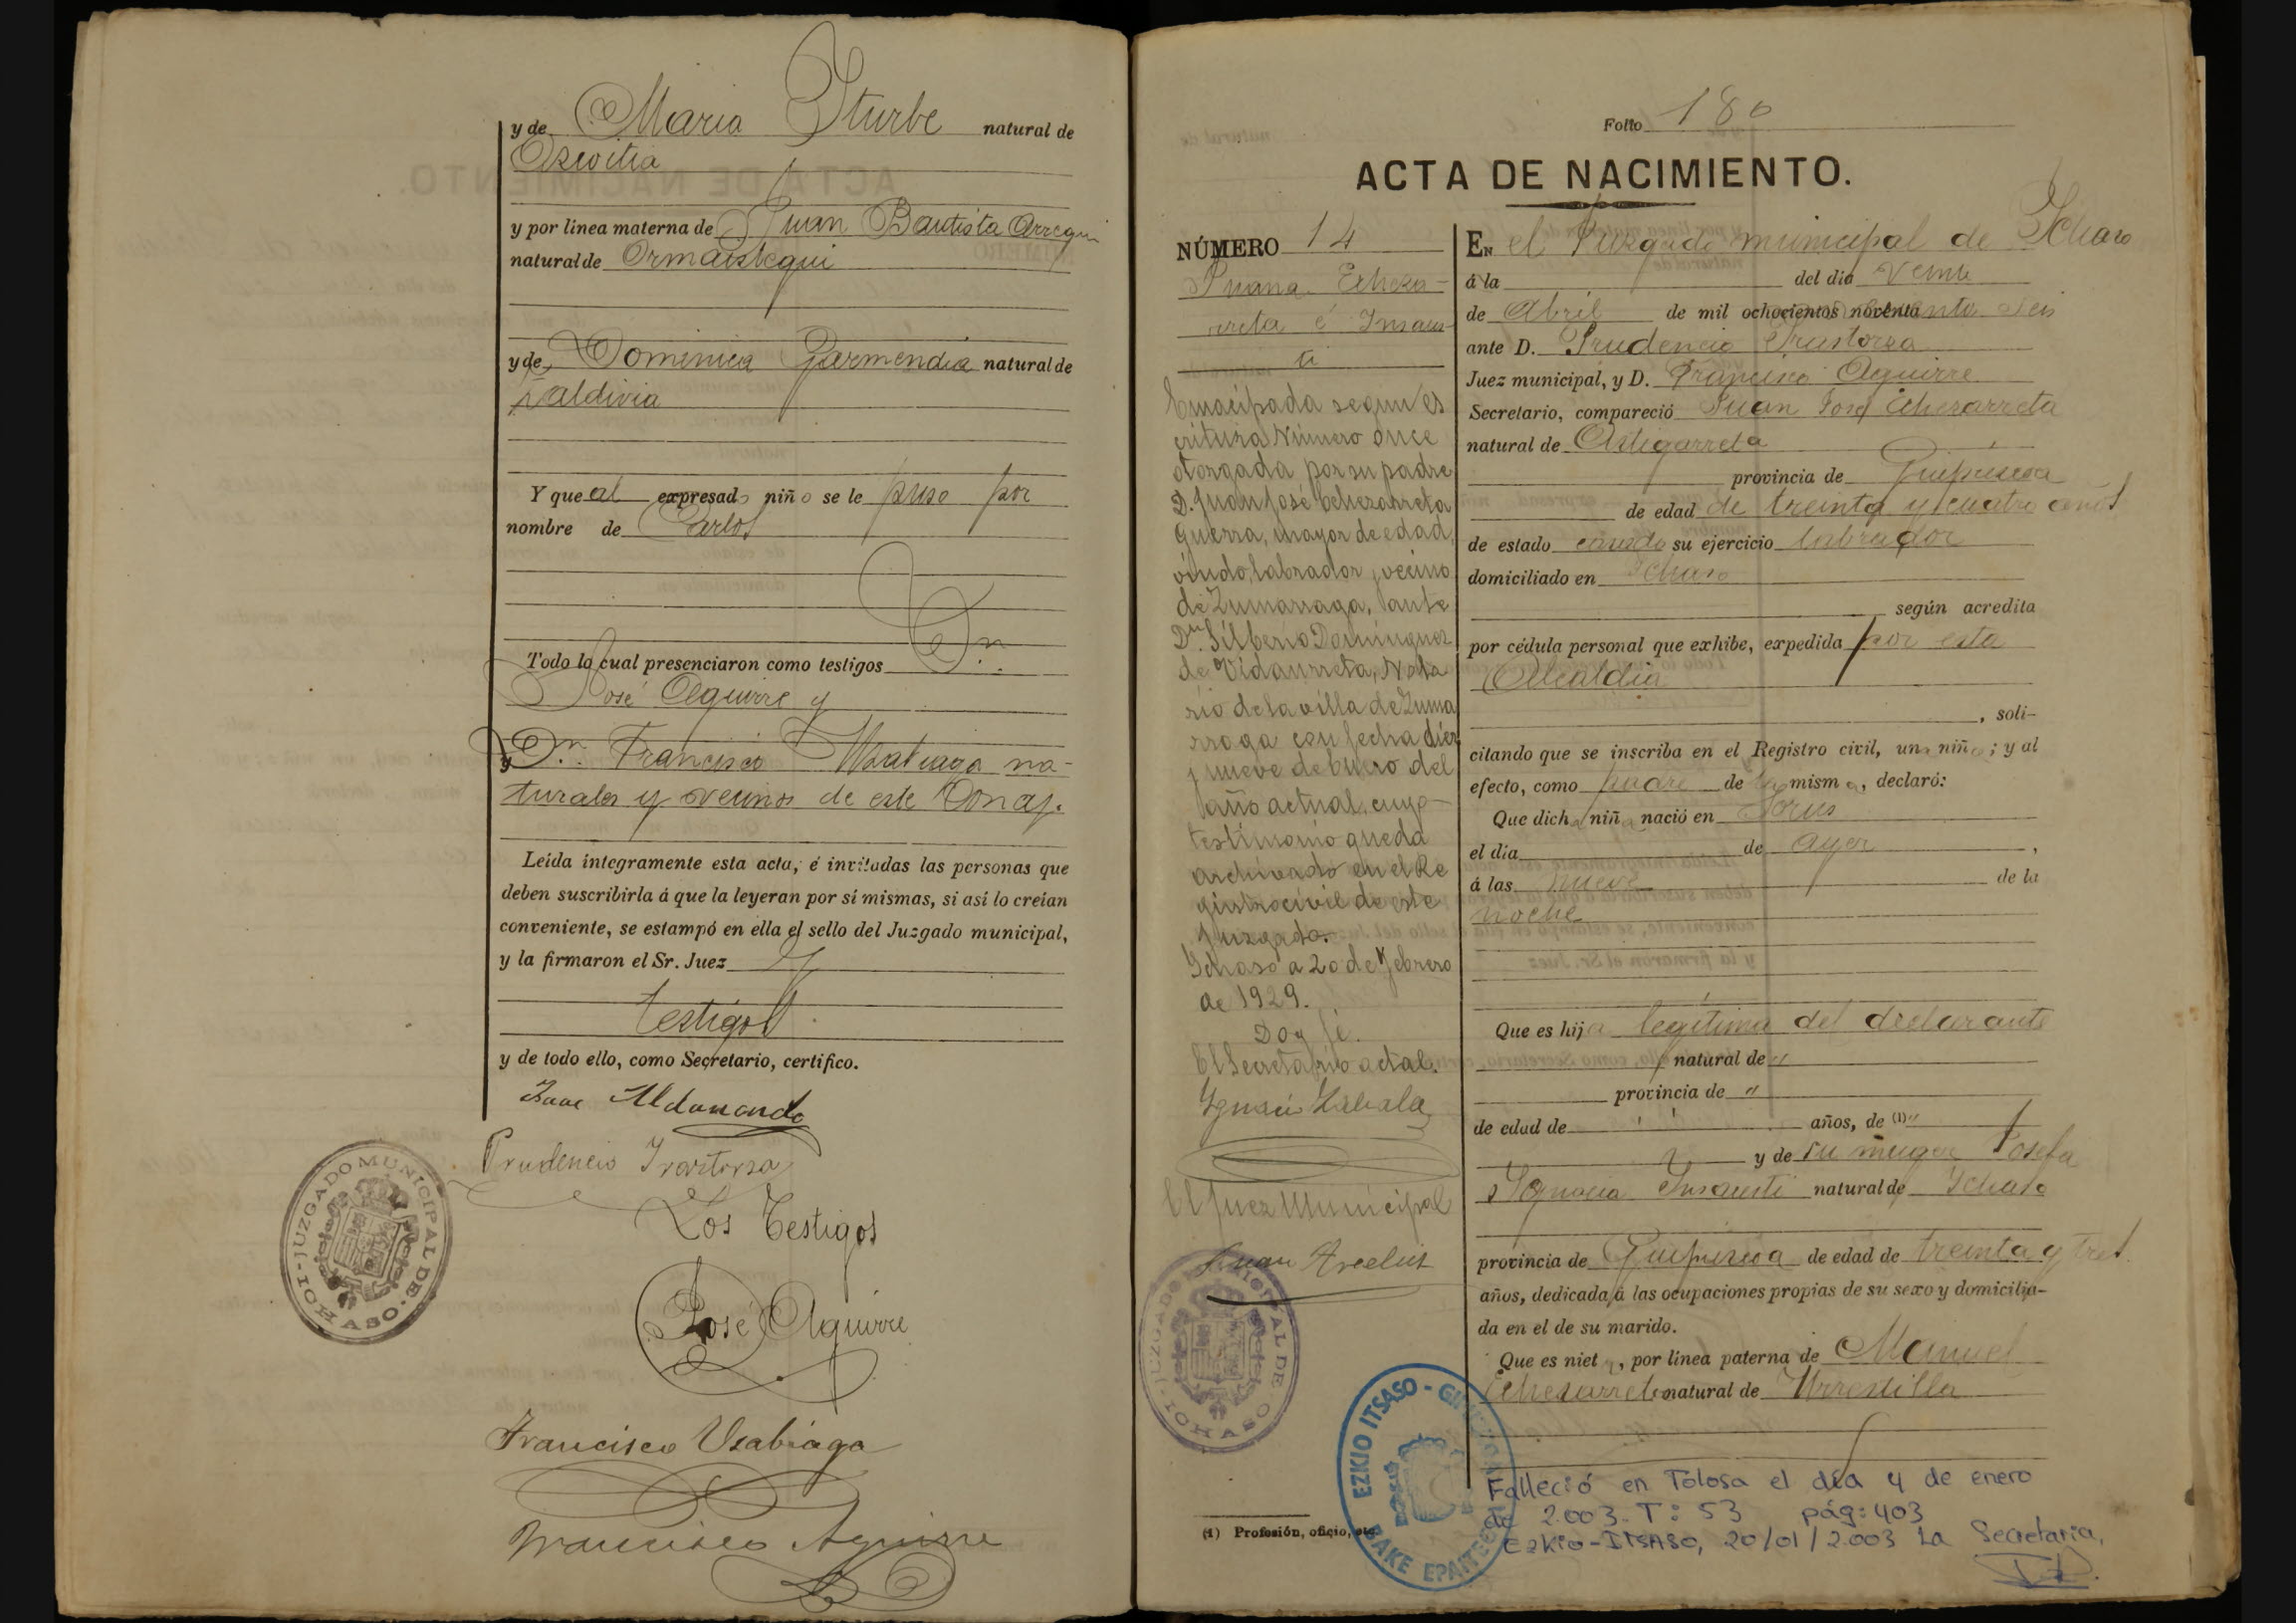 y de Maria Yturbe natural de
Azcoitia
y por linea materna de Juan Bautista Arregui
natural de Ormaiztegui
y de Dominica Garmendia natural de
Zaldivia
Y que al expresado niño se le puso por
nombre de Carlos
Todo lo cual presenciaron como testigos Dn.
José Aguirre y
y Dn. Francisco Usabiaga na-
turales y vecinos de este Conaj.
Leida integramente esta acta, é invitadas las personas que
deben suscribirla á que la leyeran por sí mismas, si así lo creian
conveniente, se estampó en ella el sello del Juzgado municipal,
y la firmaron el Sr. Juez y
testigos
y de todo ello, como Secretario, certifico.
Prudencio Irastorza
Los Testigos
José Aguirre
Francisco Usabiaga
Francisco Aguirre
JUZGADO MUNICIPAL DE ICHASO
Folio 180
ACTA DE NACIMIENTO.
NÚMERO 14
Juana Echeza-
rreta é Insaus-
ti
Emacipada segun es
critura Número once
otorgada por su padre
D. Juan José Echezarreta
Guerra, mayor de edad,
viudo, labrador, vecino
de Zumarraga, ante
Dn. Silberio Dominguez
de Vidaurreta, Nota
rio de la villa de Zuma
rraga con fecha diez
y nueve de Enero del
año actual, cuyo
testimonio queda
archivado en el Re
gistro civil de este
Juzgado.
Ichaso a 20 de Febrero
de 1929.
Doy fé.
El Secretario actal.
Ygnacio Zabala
El Juez Municipal
Juan Arcelus
JUZGADO MUNICIPAL DE ICHASO
En el Juzgado municipal de Ichaso
á la del dia veinte
de Abril de mil ochocientos noventa seis
ante D. Prudencio Irastorza
Juez municipal, y D. Francisco Aguirre
Secretario, compareció Juan José Echezarreta
natural de Astigarreta
provincia de Guipúzcoa
de edad de treinta y cuatro años
de estado casado su ejercicio labrador
domiciliado en Ichaso
según acredita
por cédula personal que exhibe, expedida por esta
Alcaldia
, soli-
citando que se inscriba en el Registro civil, una niña; y al
efecto, como padre de la misma, declaró:
Que dicha niña nació en
el dia de ayer,
á las nueve de la
noche
Que es hija legítima del declarante
natural de "
provincia de "
de edad de años, de (1) "
y de su muger Josefa
Ygnacia Insausti natural de Ichaso
provincia de Guipuzcoa de edad de treinta y tres
años, dedicada á las ocupaciones propias de su sexo y domicilia-
da en el de su marido.
Que es nieta, por linea paterna de Manuel
Echezarreta natural de Urrestilla
Falleció en Tolosa el día 4 de enero
de 2.003. T: 53 pág: 403
Ezkio-ITSASO, 20/01/2.003 La Secretaria,
(1) Profesión, oficio, etc.
EZKIO ITSASO - BAKE EPAITEGIA